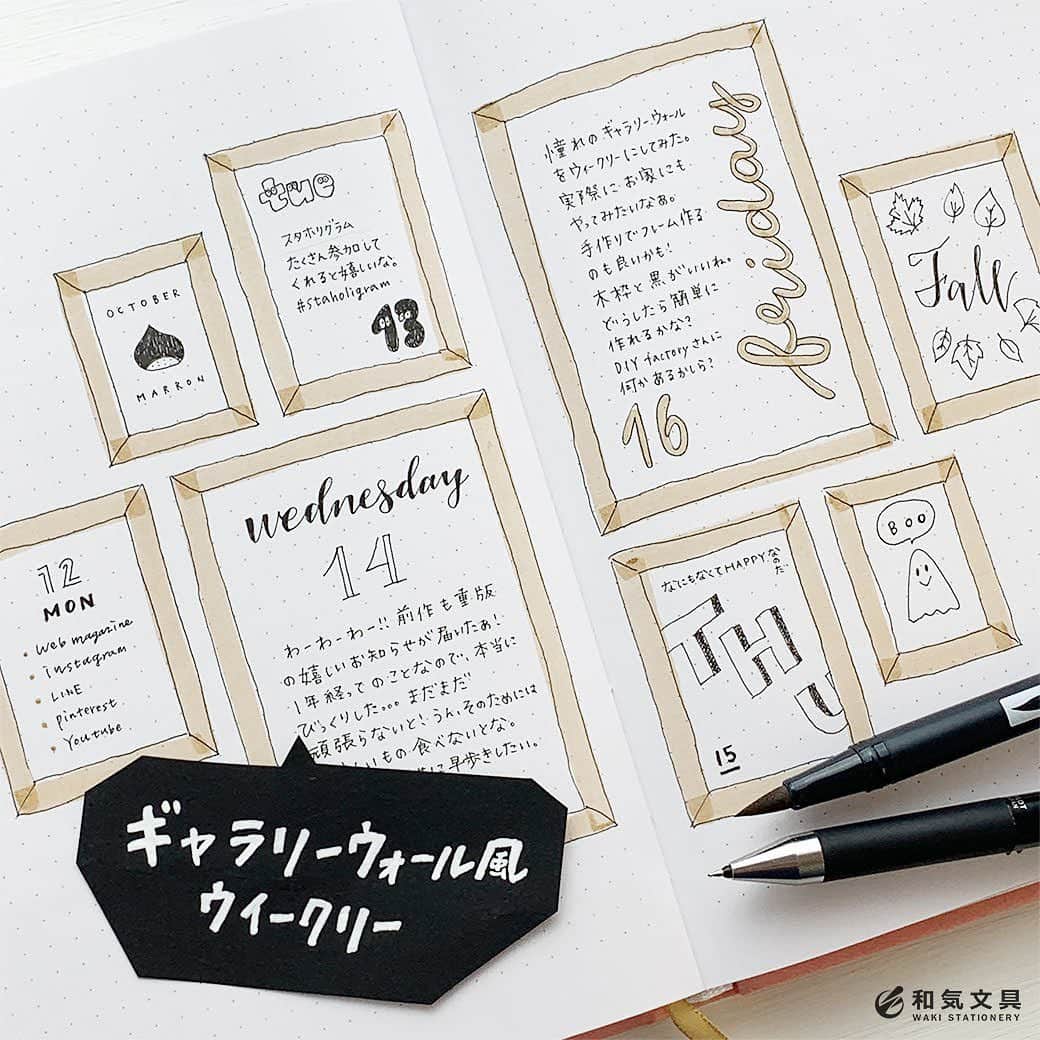 OCTOBER
MARRON
tue
スタホリグラム
たくさん参加して
くれると嬉しいな。
#staholigram
13
12
MON
web magazine
instagram
LINE
pinterest
Youtube
wednesday
14
わーわーわー!! 前作も重版
の嬉しいお知らせが届いたぁ!
1年経ってのことなので、本当に
びっくりした。。。まだまだ
頑張らないと! うん、そのためには
いもの食べないとな。
に早歩きしたい。
憧れのギャラリーウォール
をウィークリーにしてみた。
実予祭に お家にも
やってみたいなあ。
手作りでフレーム作る
のも良いかも!
木枠と黒がいいね。
どうしたら簡単に
作れるかな?
DIY factoryさんに
何かあるかしら?
friday
16
Fall
なにもなくてHAPPYなのだ
THU
15
BOO
ギャラリーウォール風
ウイークリー
和気文具
WAKI STATIONERY